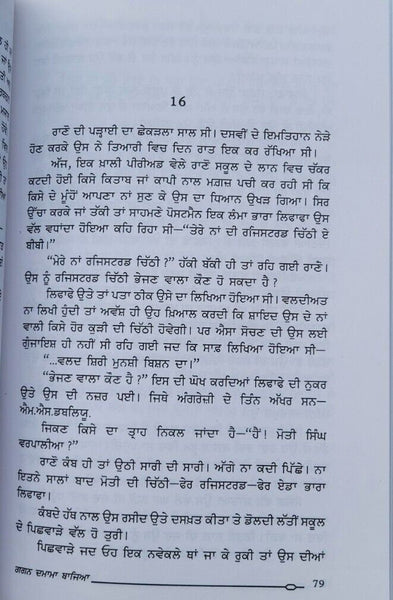 16
ਰਾਣੋ ਦੀ ਪੜ੍ਹਾਈ ਦਾ ਛੇਕੜਲਾ ਸਾਲ ਸੀ। ਦਸਵੀਂ ਦੇ ਇਮਤਿਹਾਨ ਨੇੜੇ
ਹੋਣ ਕਰਕੇ ਉਸ ਨੇ ਤਿਆਰੀ ਵਿਚ ਦਿਨ ਰਾਤ ਇਕ ਕਰ ਰੱਖਿਆ ਸੀ।
ਅੱਜ, ਇਕ ਖ਼ਾਲੀ ਪੀਰੀਅਡ ਵੇਲੇ ਰਾਣੋ ਸਕੂਲ ਦੇ ਲਾਨ ਵਿਚ ਚੱਕਰ
ਕਟਦੀ ਹੋਈ ਕਿਸੇ ਕਿਤਾਬ ਜਾਂ ਕਾਪੀ ਨਾਲ ਮਗਜ਼ ਪਚੀ ਕਰ ਰਹੀ ਸੀ ਕਿ
ਕਿਸੇ ਦੇ ਮੂੰਹੋਂ ਆਪਣਾ ਨਾਂ ਸੁਣ ਕੇ ਉਸ ਦਾ ਧਿਆਨ ਉਖੜ ਗਿਆ। ਸਿਰ
ਉੱਚਾ ਕਰਕੇ ਜਾਂ ਤੱਕੀ ਤਾਂ ਸਾਹਮਣੇ ਪੋਸਟਮੈਨ ਇਕ ਲੰਮਾ ਭਾਰਾ ਲਿਫਾਫਾ ਉਸ
ਵੱਲ ਵਧਾਂਦਾ ਹੋਇਆ ਕਹਿ ਰਿਹਾ ਸੀ—“ਤੇਰੇ ਨਾਂ ਦੀ ਰਜਿਸਟਰਡ ਚਿੱਠੀ ਏ
ਬੀਬੀ।”
“ਮੇਰੇ ਨਾਂ ਰਜਿਸਟਰਡ ਚਿੱਠੀ ?” ਹੱਕੀ ਬੱਕੀ ਹੀ ਤਾਂ ਰਹਿ ਗਈ ਰਾਣੋ।
ਉਸ ਨੂੰ ਰਜਿਸਟਰਡ ਚਿੱਠੀ ਭੇਜਣ ਵਾਲਾ ਕੌਣ ਹੋ ਸਕਦਾ ਹੈ ?
ਲਿਫਾਫੇ ਉਤੇ ਤਾਂ ਪਤਾ ਠੀਕ ਉਸੇ ਦਾ ਲਿਖਿਆ ਹੋਇਆ ਸੀ। ਵਲਦੀਅਤ
ਨਾ ਲਿਖੀ ਹੁੰਦੀ ਤਾਂ ਅਵੱਸ਼ ਹੀ ਉਹ ਖ਼ਿਆਲ ਕਰਦੀ ਕਿ ਸ਼ਾਇਦ ਉਸ ਦੇ ਨਾਂ
ਵਾਲੀ ਕਿਸੇ ਹੋਰ ਕੁੜੀ ਦੀ ਚਿੱਠੀ ਹੋਵੇਗੀ। ਪਰ ਐਸਾ ਸੋਚਣ ਦੀ ਉਸ ਲਈ
ਗੁੰਜਾਇਸ਼ ਹੀ ਨਹੀਂ ਸੀ ਰਹਿ ਗਈ ਜਦ ਕਿ ਸਾਫ਼ ਲਿਖਿਆ ਹੋਇਆ ਸੀ—
“...ਵਲਦ ਸ਼ਿਰੀ ਮੁਨਸ਼ੀ ਬਿਸ਼ਨ ਦਾ।”
“ਭੇਜਣ ਵਾਲਾ ਕੌਣ ਹੈ ?” ਇਸ ਦੀ ਘੋਖ ਕਰਦਿਆਂ ਲਿਫਾਫੇ ਦੀ ਨੁਕਰ
ਉਤੇ ਉਸ ਦੀ ਨਜ਼ਰ ਪਈ। ਜਿਥੇ ਅੰਗਰੇਜ਼ੀ ਦੇ ਤਿੰਨ ਅੱਖਰ ਸਨ—
ਐਮ.ਐਸ.ਡਬਲਿਯੂ.
ਜਿਕਣ ਕਿਸੇ ਦਾ ਤ੍ਰਾਹ ਨਿਕਲ ਜਾਂਦਾ ਹੈ—“ਹੈਂ! ਮੋਤੀ ਸਿੰਘ
ਵਰਪਾਲੀਆ ?”
ਰਾਣੋ ਕੰਬ ਹੀ ਤਾਂ ਉਠੀ ਸਾਰੀ ਦੀ ਸਾਰੀ। ਅੱਗੇ ਨਾ ਕਦੀ ਪਿੱਛੇ। ਨਾ
ਇਤਨੇ ਸਾਲਾਂ ਬਾਦ ਮੋਤੀ ਦੀ ਚਿੱਠੀ—ਫੇਰ ਰਜਿਸਟਰਡ—ਫੇਰ ਏਡਾ ਭਾਰਾ
ਲਿਫਾਫਾ।
ਕੰਬਦੇ ਹੱਥ ਨਾਲ ਉਸ ਰਸੀਦ ਉਤੇ ਦਸਖ਼ਤ ਕੀਤਾ ਤੇ ਡੋਲਦੀ ਲੱਤੀਂ ਸਕੂਲ
ਦੇ ਪਿਛਵਾੜੇ ਵੱਲ ਹੋ ਤੁਰੀ।
ਪਿਛਵਾੜੇ ਜਦ ਓਹ ਇਕ ਨਵੇਕਲੇ ਥਾਂ ਜਾ ਕੇ ਰੁਕੀ ਤਾਂ ਉਸ ਦੀਆਂ
ਗਗਨ ਦਮਾਮਾ ਬਾਜਿਆ
79